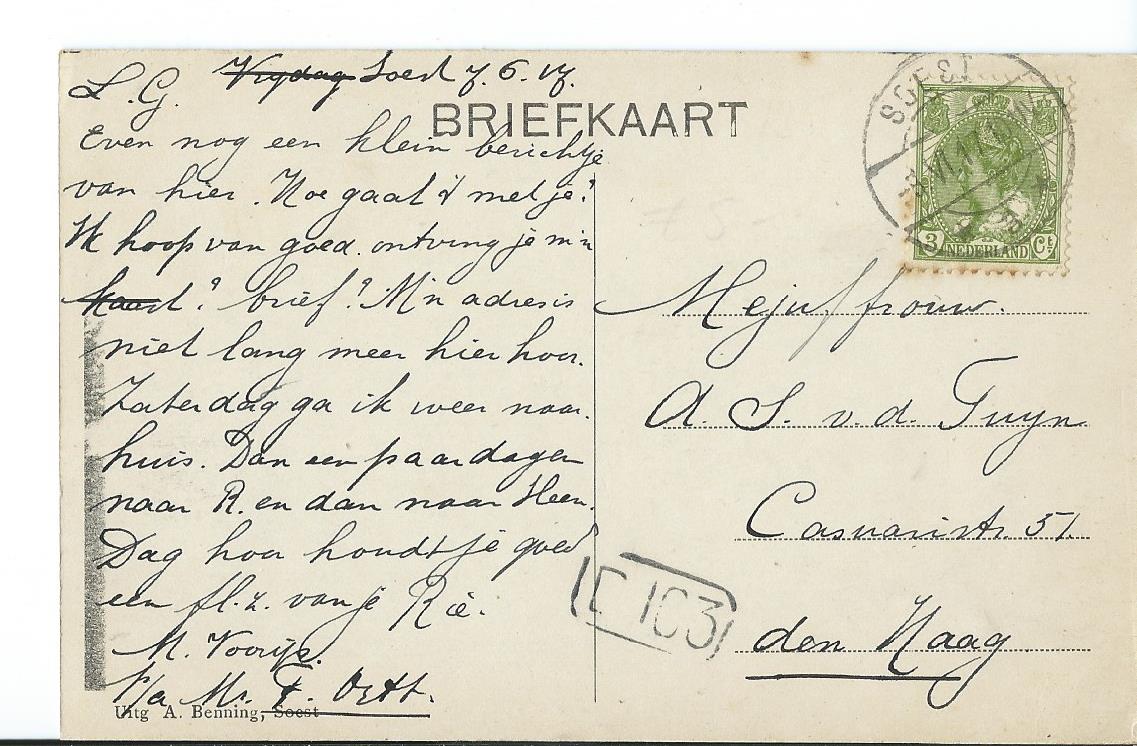 L. G. Vrijdag Soest 7.6.17.
BRIEFKAART
Even nog een klein berichtje
van hier. Hoe gaat 't met je?
Ik hoop van goed. ontving je m'n
kaart? brief? M'n adres is
niet lang meer hier hoor.
Zaterdag ga ik weer naar
huis. Dan een paar dagen
naar R. en dan naar Heen.
Dag hoor houdt je goed
een fl. z. van je Rie.
M. Voorijs.
P/a Mr. F. Ortt.
Uitg A. Benning, Soest
SOEST
3 NEDERLAND Ct
Mejuffrouw.
A. S. v. d. Tuyn
Casuaristr. 51.
den Haag
C 103